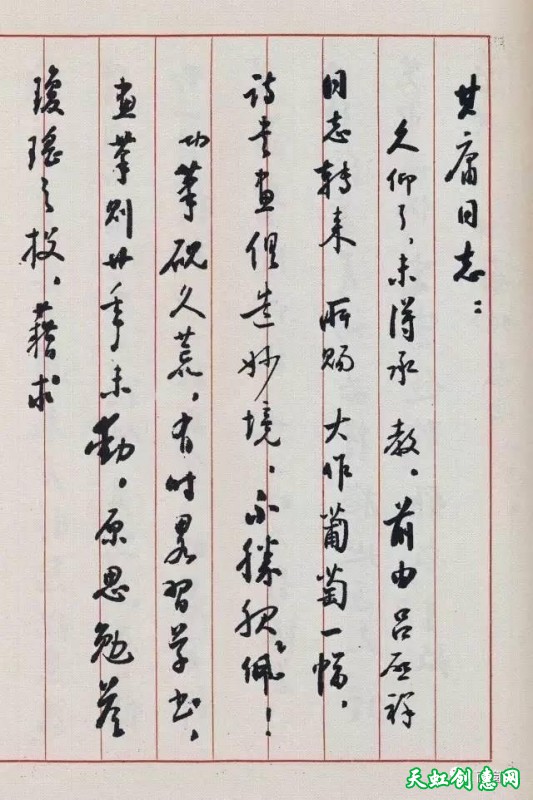 其庸同志:
久仰了,未得承 教。前由吕启祥
同志转来 所赐 大作葡萄一幅,
诗书画俱造妙境,不胜钦佩!
功笔砚久荒,有时略习学书,
画笔则廿年未动。原思勉答
琼瑶之投,藉求
天虹创意网